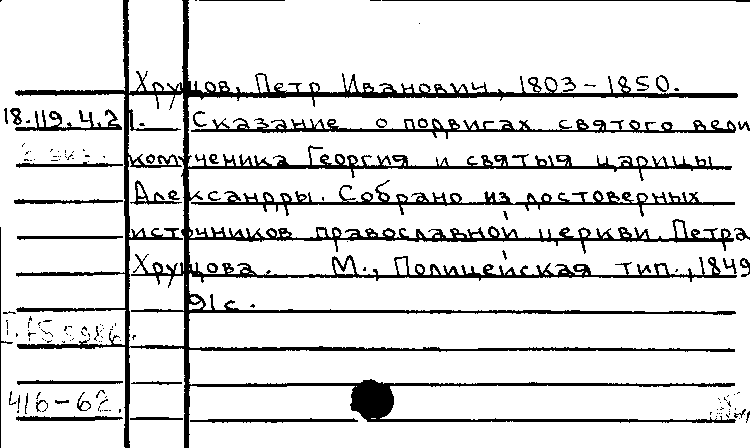 Хрущов, Петр Иванович, 1803-1850.
18.119.4.21. Сказание о подвигах святого вели
2 экз. комученика Георгия и святыя царицы
Александры. Собрано из достоверных
источников православной церкви Петра
Хрущова. М., Полицейская тип., 1849
91 с.
416-62.